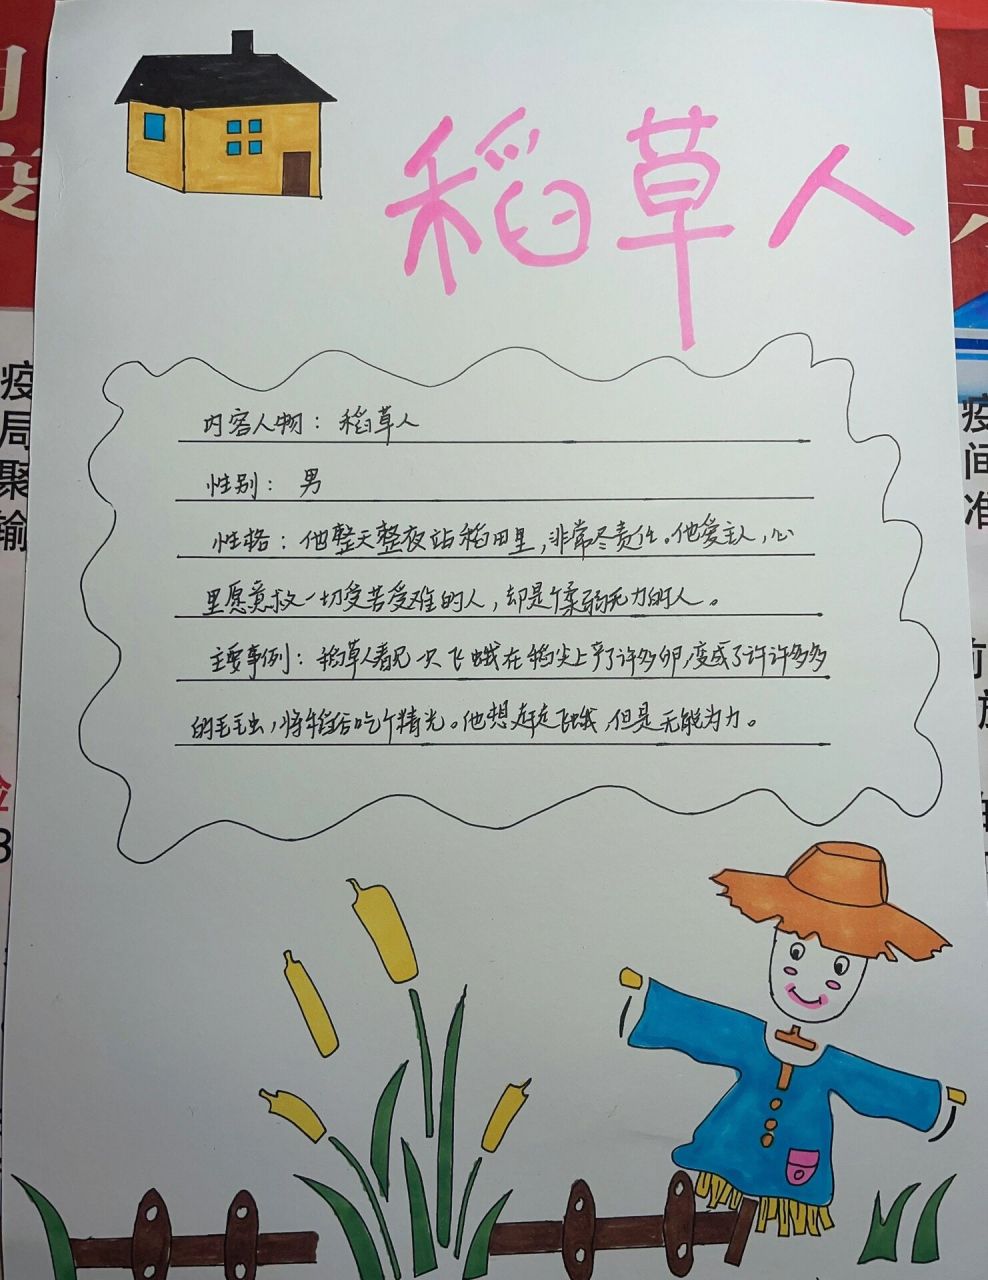 稻草人
内容人物：稻草人
性别：男
性格：他整天整夜站稻田里，非常尽责任。他爱主人，心
里愿意救一切受苦受难的人，却是个柔弱无力的人。
主要事例：稻草人看见一只飞蛾在稻尖上产了许多卵，变成了许许多多
的毛毛虫，将稻谷吃个精光。他想赶走飞蛾，但是无能为力。
疫
局
聚
输
疫
间
准
前
放